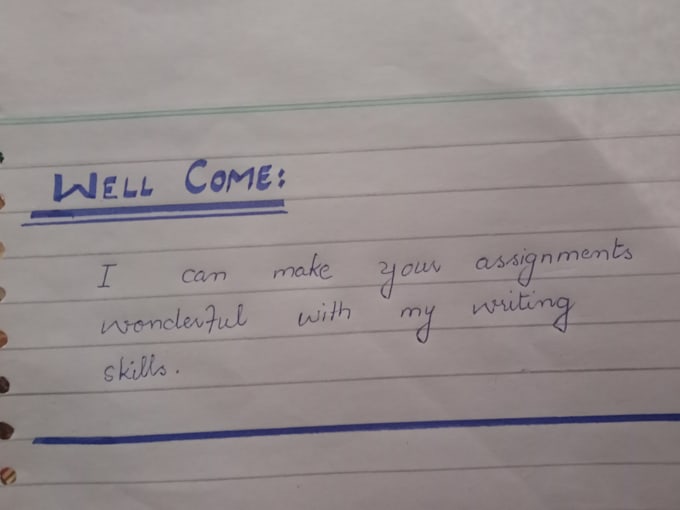 WELL COME:
I can make your assignments
wonderful with my writing
skills.